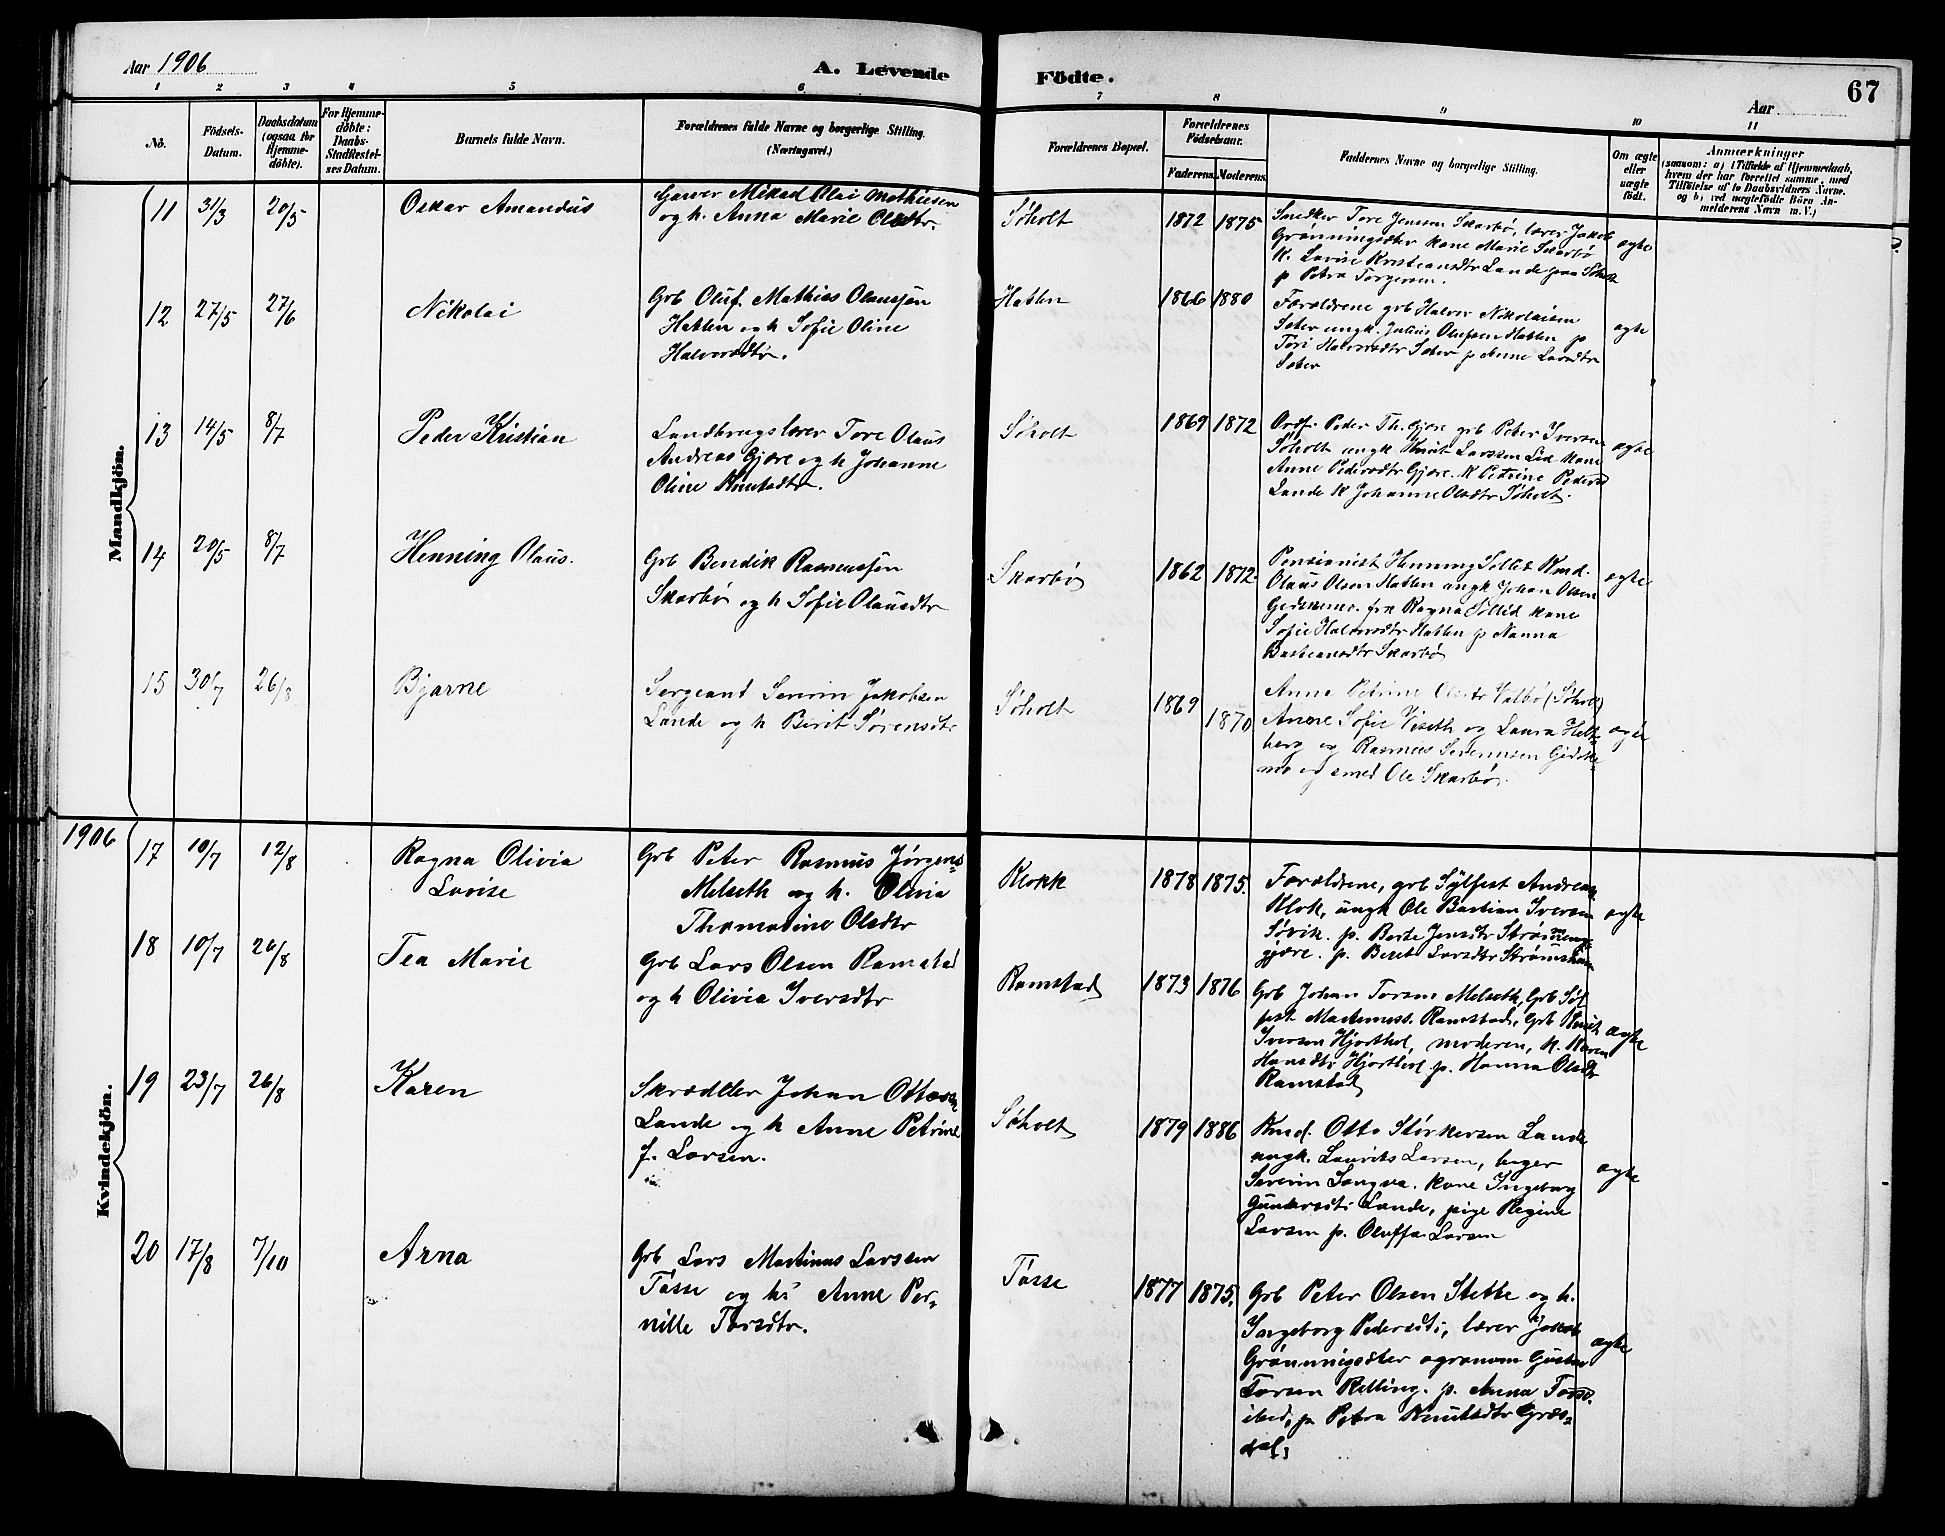 Aar 1906
A. Levende
Födte.
Aar
67
1 2 3 4 5 6 7 8 9 10 11
No.
Födsels-
Datum.
Daabsdatum
(ogsaa for
Hjemme-
döbte).
For Hjemme-
döbte:
Daabs-
Stadfæstel-
ses Datum.
Barnets fulde Navn.
Forældrenes fulde Navne og borgerlige Stilling.
(Næringsvei.)
Forældrenes Bopæl.
Forældrenes
Födselsaar.
Faderens. Moderens.
Faddernes Navne og borgerlige Stilling.
Om ægte
eller
uægte
födt.
Anmærkninger
(saasom: a) i Tilfælde af Hjemmedaab,
hvem der har forrettet samme, med
Tilföielse af to Daabsvidners Navne.
og b) ved uægtefödte Börn An-
melderens Navn m. V.)
Mandkjön.
11 31/3 20/5 Oskar Amandus
Garver Mikal Olai Mathiesen
og h. Anna Marie Olsdtr.
Søholt 1872 1875
Snedker Tore Jensen Skarbø, lærer Jakob
Grønningsæter kone Marie Skarbø
k. Lovise Kristiansdtr Lande paa Søholt
p Petra Torgersen.
ægte
12 27/5 27/6 Nikolai
Grb Oluf Mathias Olaussøn
Hatlen og h Sofie Oline
Halvorsdtr.
Hatlen 1866 1880
Forældrene grb Halvor Nikolaisen
Sæter ungk. Julius Olufsen Hatlen p
Tori Halvorsdtr Sæter p Anne Larsdtr
Sæter
ægte
13 14/5 8/7 Peder Kristian
Landbrugslærer Tore Olaus
Andreas Gjære og h Johanne
Oline Knutsdtr.
Søholt 1869 1872
Ordf. Peder Th. Gjære grb Peter Iversen
Søholt ungk Knut Larssen Lid kone
Anne Pedersdtr Gjære. k Petrine Pedersd
Lande k Johanne Olsdtr Søholt.
ægte
14 20/5 8/7 Henning Olaus.
Grb Bendik Rasmussøn
Skarbø og h Sofie Olausdtr
Skarbø 1862 1872.
Pensionist Henning Sollid Kmd.
Olaus Olsen Hatlen ungk Johan Olsen
Gidskemo. frk Ragna Sollid kone
Sofie Halvorsdtr Hatlen p Nanna
Bastiansdtr Skarbø
ægte
15 30/7 26/8 Bjarne
Sergeant Severin Jakobsen
Lande og h Berit Sørensdtr
Søholt 1869 1870
Anne Petrine Olsdtr Valbø (Søholt)
Anne Sofie Viseth og Laura Helt-
berg og Rasmus Sørensen Gidske-
mo og smed Ole Skarbø.
ægte
1906
Kvindekjön.
17 10/7 12/8 Ragna Olivia
Lovise
Grb Peter Rasmus Jørgens=
Melseth og h. Olivia
Thomasine Olsdtr
Klokk 1878 1875.
Forældrene, grb Sylfest Andreas
Klok, ungk Ole Bastian Iversen
Søvik. p. Berte Jensdtr Strømmeng-
gjære. p. Berit Larsdtr Strømsheim
ægte
18 10/7 26/8 Tea Marie
Grb Lars Olsen Ramstad
og h Olivia Iversdtr
Ramstad 1873 1876
Grb Johan Torsen Melseth, Grb Syl
fest Martinuss. Ramstad, Grb Knut
Iversen Hjorthol, moderen, k. Karen
Hansdtr Hjorthol p. Hanna Olsdtr
Ramstad
ægte
19 23/7 26/8 Karen
Skrædder Johan Ottesen
Lande og h Anne Petrine
f. Larsen.
Søholt 1879 1886
Kmd. Otto Størkersen Lande
ungk. Laurits Larsen, bager
Severin Langva. kone Ingeborg
Gunhersdtr Lande, pige Regine
Larsen p. Oluffa Larsen
ægte
20 17/8 7/10 Arna
Grb Lars Martinus Larssen
Tøsse og h: Anne Per-
nille Torsdtr.
Tøsse 1877 1875.
Grb Peter Olsen Stette og h.
Ingeborg Pedersdtr, lærer Jakob
Grønningsæter agronom Gustav
Torsen Relling. p. Anna Tøsse
ibid, p Petra Knutsdtr Græs=
dal.
ægte